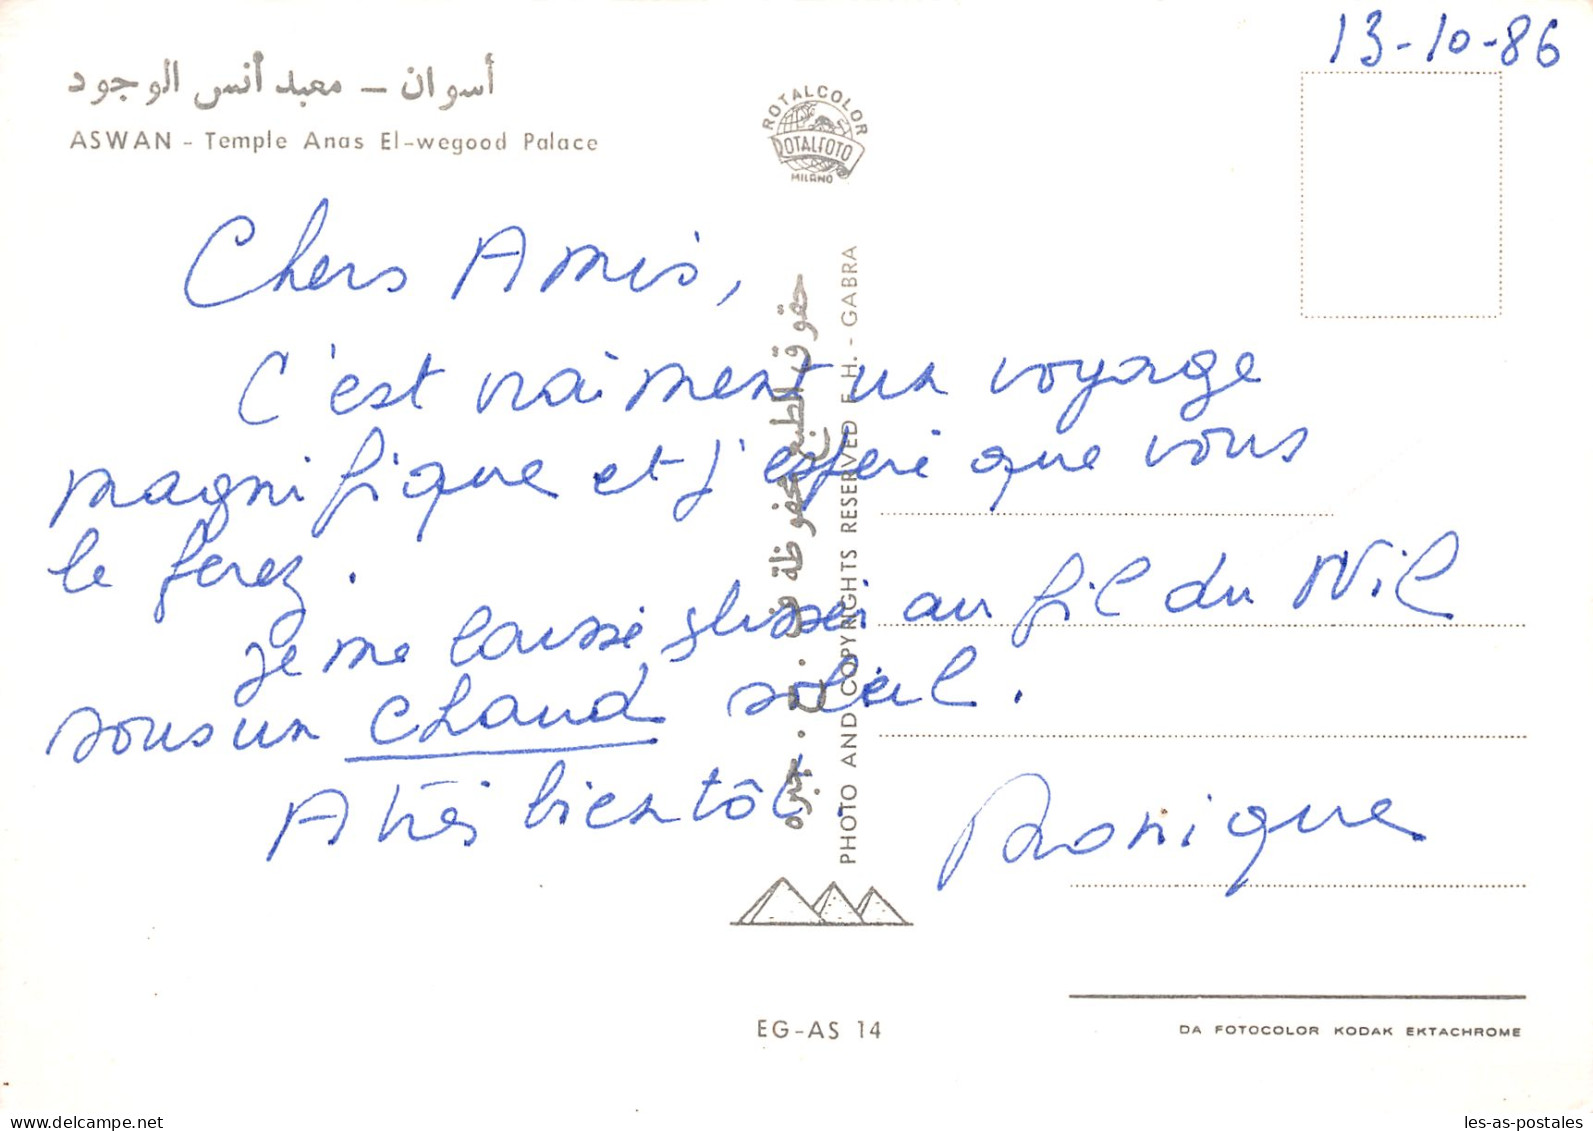 13-10-86
أسوان – معبد أنس الوجود
ASWAN - Temple Anas El-wegood Palace
ROTALCOLOR
ROTALFOTO
MILANO
Chers Amis,
C'est vraiment un voyage
magnifique et j'espère que vous
le ferez.
Je me laisse glisser au fil du Nil
sous un chaud soleil.
A très bientôt.
Monique
حقوق الطبع محفوظة ف. ح. جبره
PHOTO AND COPYRIGHTS RESERVED F. H. - GABRA
EG-AS 14
DA FOTOCOLOR KODAK EKTACHROME
les-as-postales